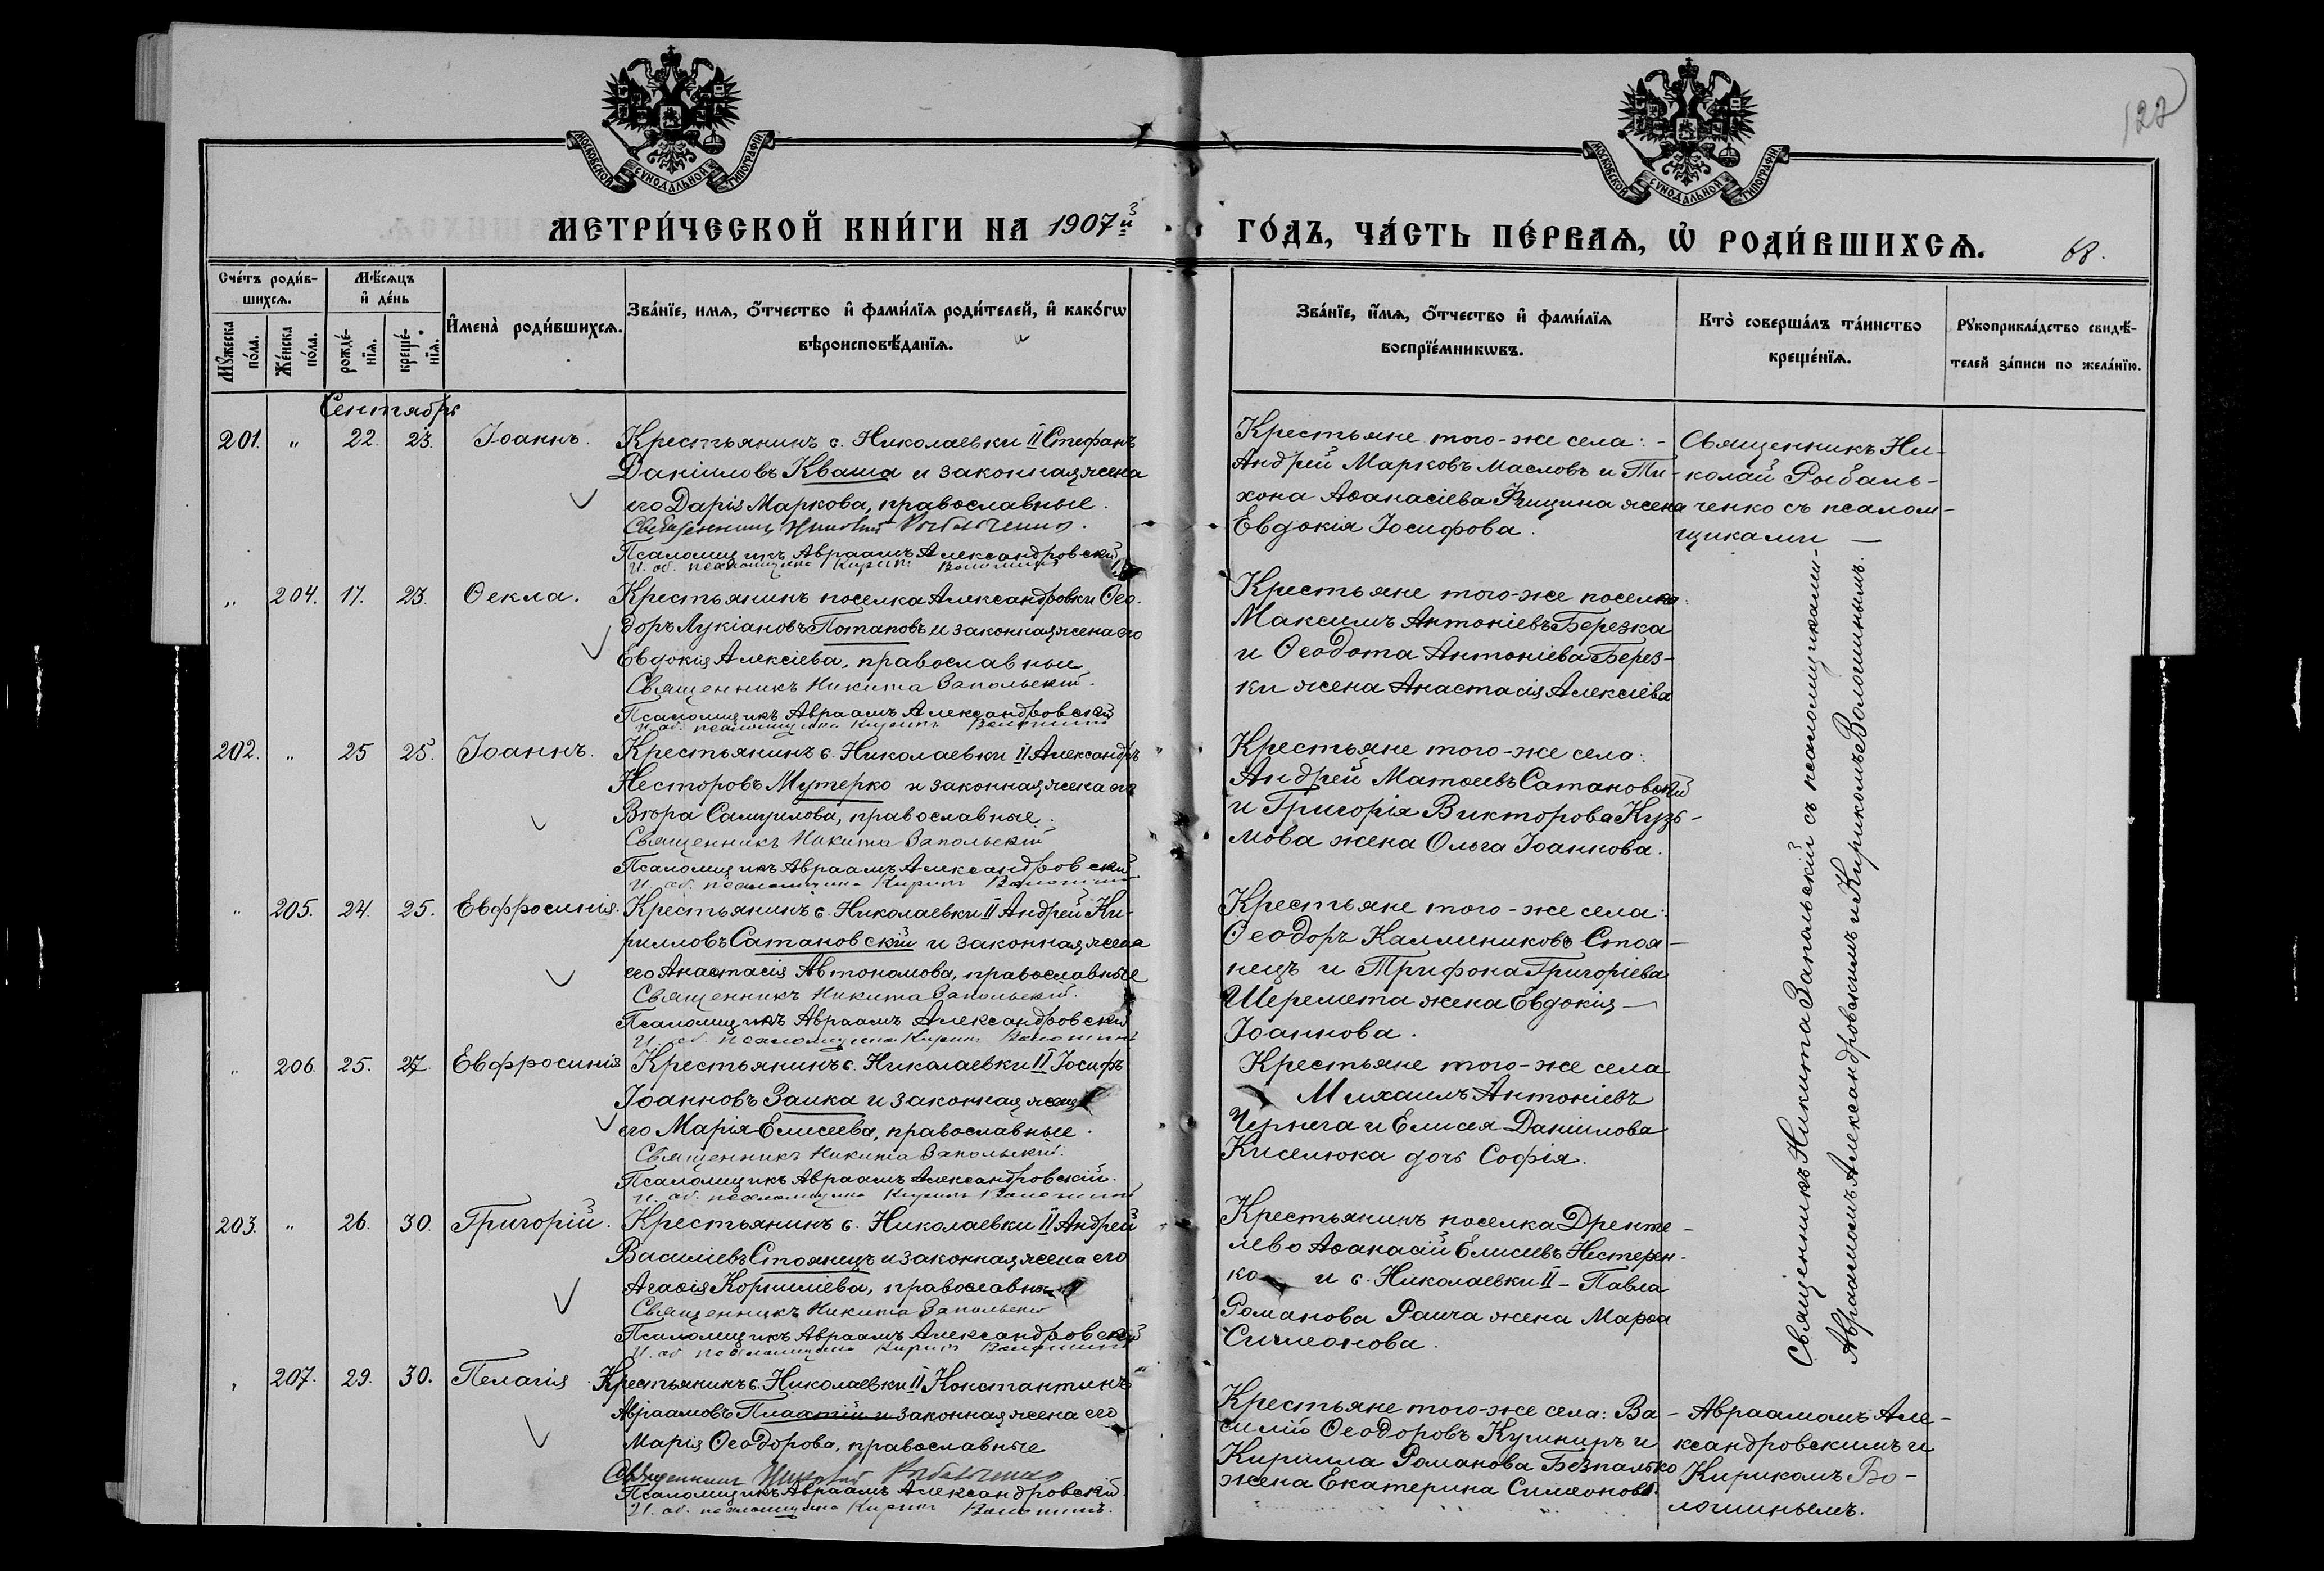 МОСКОВСКОЙ СѴНОДАЛЬНОЙ ТИПОГРАФІИ
МОСКОВСКОЙ СѴНОДАЛЬНОЙ ТИПОГРАФІИ
122
МЕТРИ́ЧЕСКОЙ КНИ́ГИ НА 1907й
ГО́ДЪ, ЧА́СТЬ ПЕ́РВАѦ, Ѡ҆ РОДИ́ВШИХСѦ.
68.
Сче́тъ роди́в-
шихсѧ.
Мѣ́сѧцъ
и҆ де́нь
Мꙋ́жеска
по́ла.
Же́нска
по́ла.
рожде́-
нїѧ.
креще́-
нїѧ.
И҆мена̀ роди́вшихсѧ.
Зва́нїе, имѧ, ѻ҆́тчество и҆ фами́лїѧ роди́телей, и҆ како́гѡ
вѣроисповѣ́данїѧ.
Зва́нїе, и҆́мѧ, ѻ҆́тчество и҆ фами́лїѧ
воспрїе́мникѡвъ.
Кто̀ соверша́лъ та́инство
креще́нїѧ.
Рꙋкоприкла́дство свидѣ́-
телей за́писи по жела́нїю.
Сентябрь
201. " 22. 23. Іоаннъ. Крестьянинъ с. Николаевки II Стефанъ
Даніиловъ Кваша и законная жена
его Дарія Маркова, православные.
Священникъ Николай Рыбальченко.
Псаломщикъ Авраамъ Александровскій
И. об. псаломщика Кирикъ Волошинъ
Крестьяне того-же села: -
Андрей Марковъ Масловъ и Ти-
хона Аѳанасіева жена
Евдокія Іосифова.
Священникъ Ни-
колай Рыбаль-
ченко съ псалом-
щиками —
" 204. 17. 23. Ѳекла. Крестьянинъ поселка Александровки Ѳео-
доръ Лукіановъ Потаповъ и законная жена его
Евдокія Алексіева, православные
Священникъ Никита Запольскій.
Псаломщикъ Авраамъ Александровскій
И. об. псаломщика Кирикъ Волошинъ
Крестьяне того-же поселка:
Максимъ Антоніевъ Березка
и Ѳеодота Антоніева Берез-
ки жена Анастасія Алексіева
202. " 25 25. Іоаннъ. Крестьянинъ с. Николаевки II Александръ
Несторовъ Мутерко и законная жена его
Вѣра Самуилова, православные.
Священникъ Никита Запольскій
Псаломщикъ Авраамъ Александровскій
И. об. псаломщика Кирикъ Волошинъ
Крестьяне того-же села:
Андрей Матѳеевъ Сатановскій
и Григорія Викторова Кузь-
мова жена Ольга Іоаннова.
" 205. 24. 25. Евфросинія. Крестьянинъ с. Николаевки II Андрей Ки-
рилловъ Сатановскій и законная жена
его Анастасія Автономова, православные
Священникъ Никита Запольскій.
Псаломщикъ Авраамъ Александровскій
И. об. псаломщика Кирикъ Волошинъ
Крестьяне того-же села:
Ѳеодоръ Каллиниковъ Стоя-
нецъ и Трифона Григоріева
Шеремета жена Евдокія —
Іоаннова.
" 206. 25. 27. Евфросинія Крестьянинъ с. Николаевки II Іосифъ
Іоанновъ Заика и законная жена
его Марія Елисеева, православные.
Священникъ Никита Запольскій.
Псаломщикъ Авраамъ Александровскій.
И. об. псаломщика Кирикъ Волошинъ
Крестьяне того-же села
Михаилъ Антоніевъ
Чернега и Елисея Даніилова
Киселюка дочь Софія.
203. " 26. 30. Григорій. Крестьянинъ с. Николаевки II Андрей
Василіевъ Стоянецъ и законная жена его
Агаѳія Корниліева, православные
Священникъ Никита Запольскій
Псаломщикъ Авраамъ Александровскій
И. об. псаломщика Кирикъ Волошинъ
Крестьянинъ поселка Дренте-
лево Аѳанасій Елисеевъ Нестерен-
ко и с. Николаевки II - Павла
Романова Раича жена Марѳа
Симеонова.
" 207. 29. 30. Пелагія Крестьянинъ с. Николаевки II Константинъ
Авраамовъ Плахтій и законная жена его
Марія Ѳеодорова, православные
Священникъ Николай Рыбальченко
Псаломщикъ Авраамъ Александровскій.
И. об. псаломщика Кирикъ Волошинъ.
Крестьяне того-же села: Ва-
силій Ѳеодоровъ Кушниръ и
Кирилла Романова Безпалько
жена Екатерина Симеонова.
Священникъ Никита Запольскій съ псаломщиками -
Авраамомъ Александровскимъ и Кирикомъ Волошинымъ.
Авраамомъ Але-
ксандровскимъ и
Кирикомъ Во-
лошинымъ.